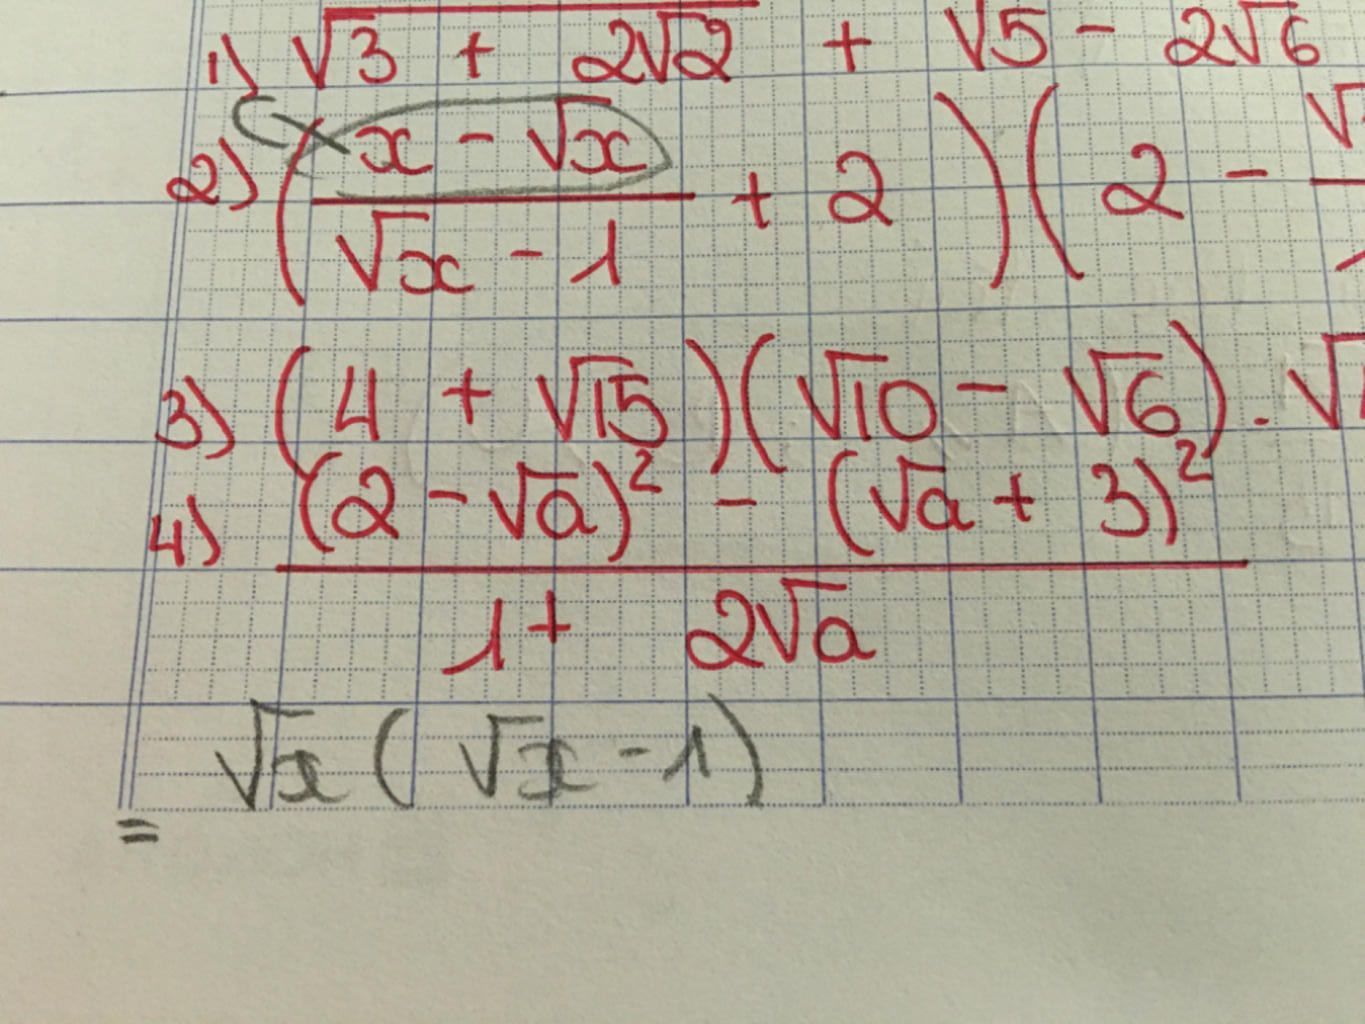 1) √3 + 2√2 + √5 - 2√6
2) (x - √x / √x - 1 + 2)(2 - √
3) (4 + √15)(√10 - √6) . √
4) (2 - √a)² - (√a + 3)²
1 + 2√a
√x (√x - 1)
=